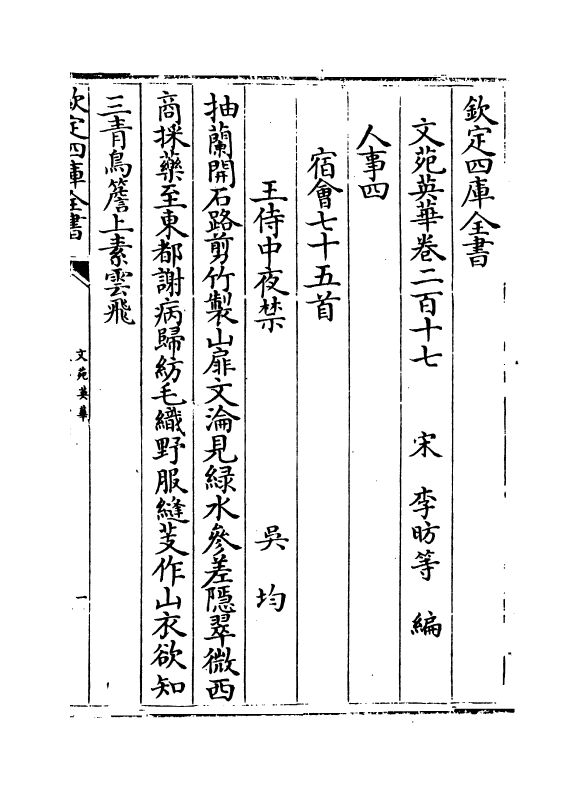 欽定四庫全書
文苑英華卷二百十七　宋　李昉等　編
人事四
宿會七十五首
王侍中夜禁　吳均
抽蘭開石路剪竹製山扉文淪見緑水參差隱翠微西
商採藥至東都謝病歸紡毛織野服縫芰作山衣欲知
三青鳥簷上素雲飛
欽定四庫全書
文苑英華
一